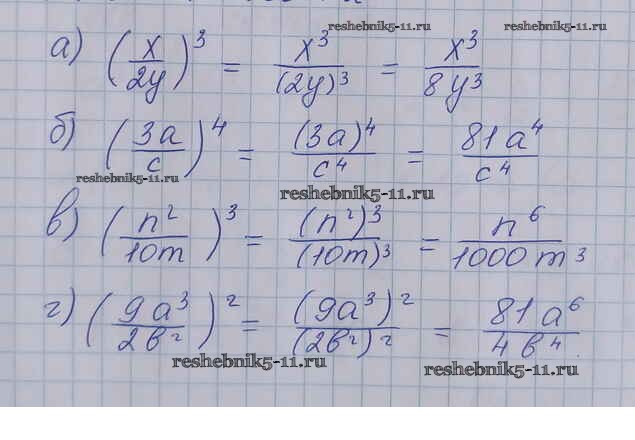 reshebnik5-11.ru reshebnik5-11.ru
а) (x/2y)³ = x³/(2y)³ = x³/8y³
б) (3a/c)⁴ = (3a)⁴/c⁴ = 81a⁴/c⁴
reshebnik5-11.ru reshebnik5-11.ru
в) (n²/10m)³ = (n²)³/(10m)³ = n⁶/1000m³
г) (9a³/2b²)² = (9a³)²/(2b²)² = 81a⁶/4b⁴.
reshebnik5-11.ru reshebnik5-11.ru